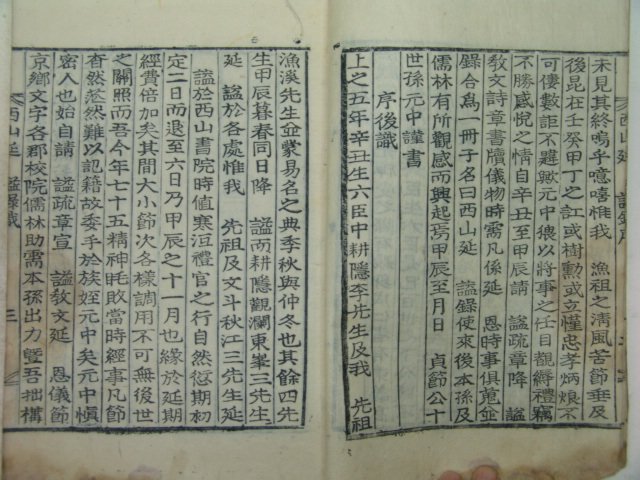 未見其終嗚乎噫嘻惟我 漁祖之淸風苦節垂及
後昆在壬癸甲丁之訌或樹勳或立慬忠孝炳烺不
可僂數詎不韙歟元中猥以將事之任目觀縟禮竊
不勝感悅之情自辛丑至甲辰請 謚疏章降 謚
敎文詩章書牘儀物時需凡係延 恩時事俱蒐並
錄合爲一冊子名曰西山延 謚錄使來後本孫及
儒林有所觀感而興起焉甲辰至月日 貞節公十
世孫元中謹書
序後識
上之五年辛丑生六臣中耕隱李先生及我 先祖
西山延 謚錄識 三
漁溪先生並蒙易名之典季秋與仲冬也其餘四先
生甲辰暮春同日降 謚而耕隱觀瀾東峯三先生
延 謚於各處惟我 先祖及文斗秋江三先生延
謚於西山書院時値寒沍禮官之行自然愆期初
定二日而退至六日乃甲辰之十一月也緣於延期
經費倍加矣其間大小節次各樣調用不可無後世
之關照而吾今年七十五精神眊敗當時經事凡節
杳然茫然難以記籍故委乎於族姪元中矣元中愼
密人也始自請 謚疏章宣 謚敎文延 恩儀節
京鄕文字各郡校院儒林助需本孫出力曁吾拙構